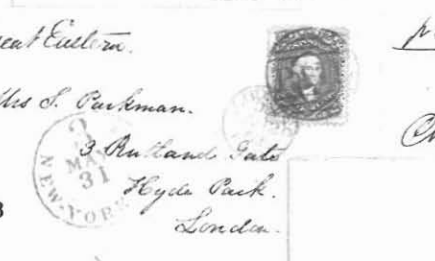 eat Eastern.
Mrs S. Parkman.
3 Rutland Gate
Hyde Park.
London.
3
MA
31
NEW-YORK